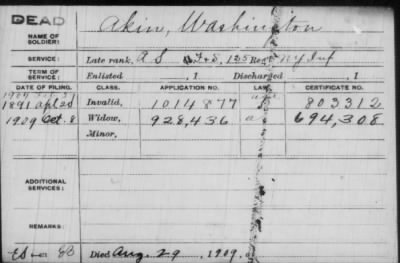 DEAD
NAME OF SOLDIER: Akin, Washington
SERVICE: Late rank, A S 135 Reg't N Y Inf
TERM OF SERVICE: Enlisted , 1 Discharged , 1
DATE OF FILING. CLASS. APPLICATION NO. CERTIFICATE NO.
1891 Apl 25 Invalid, 1014877 803312
1909 Oct. 8 Widow, 928,436 694,308
Minor,
ADDITIONAL SERVICES:
REMARKS:
Died Aug. 29, 1909,